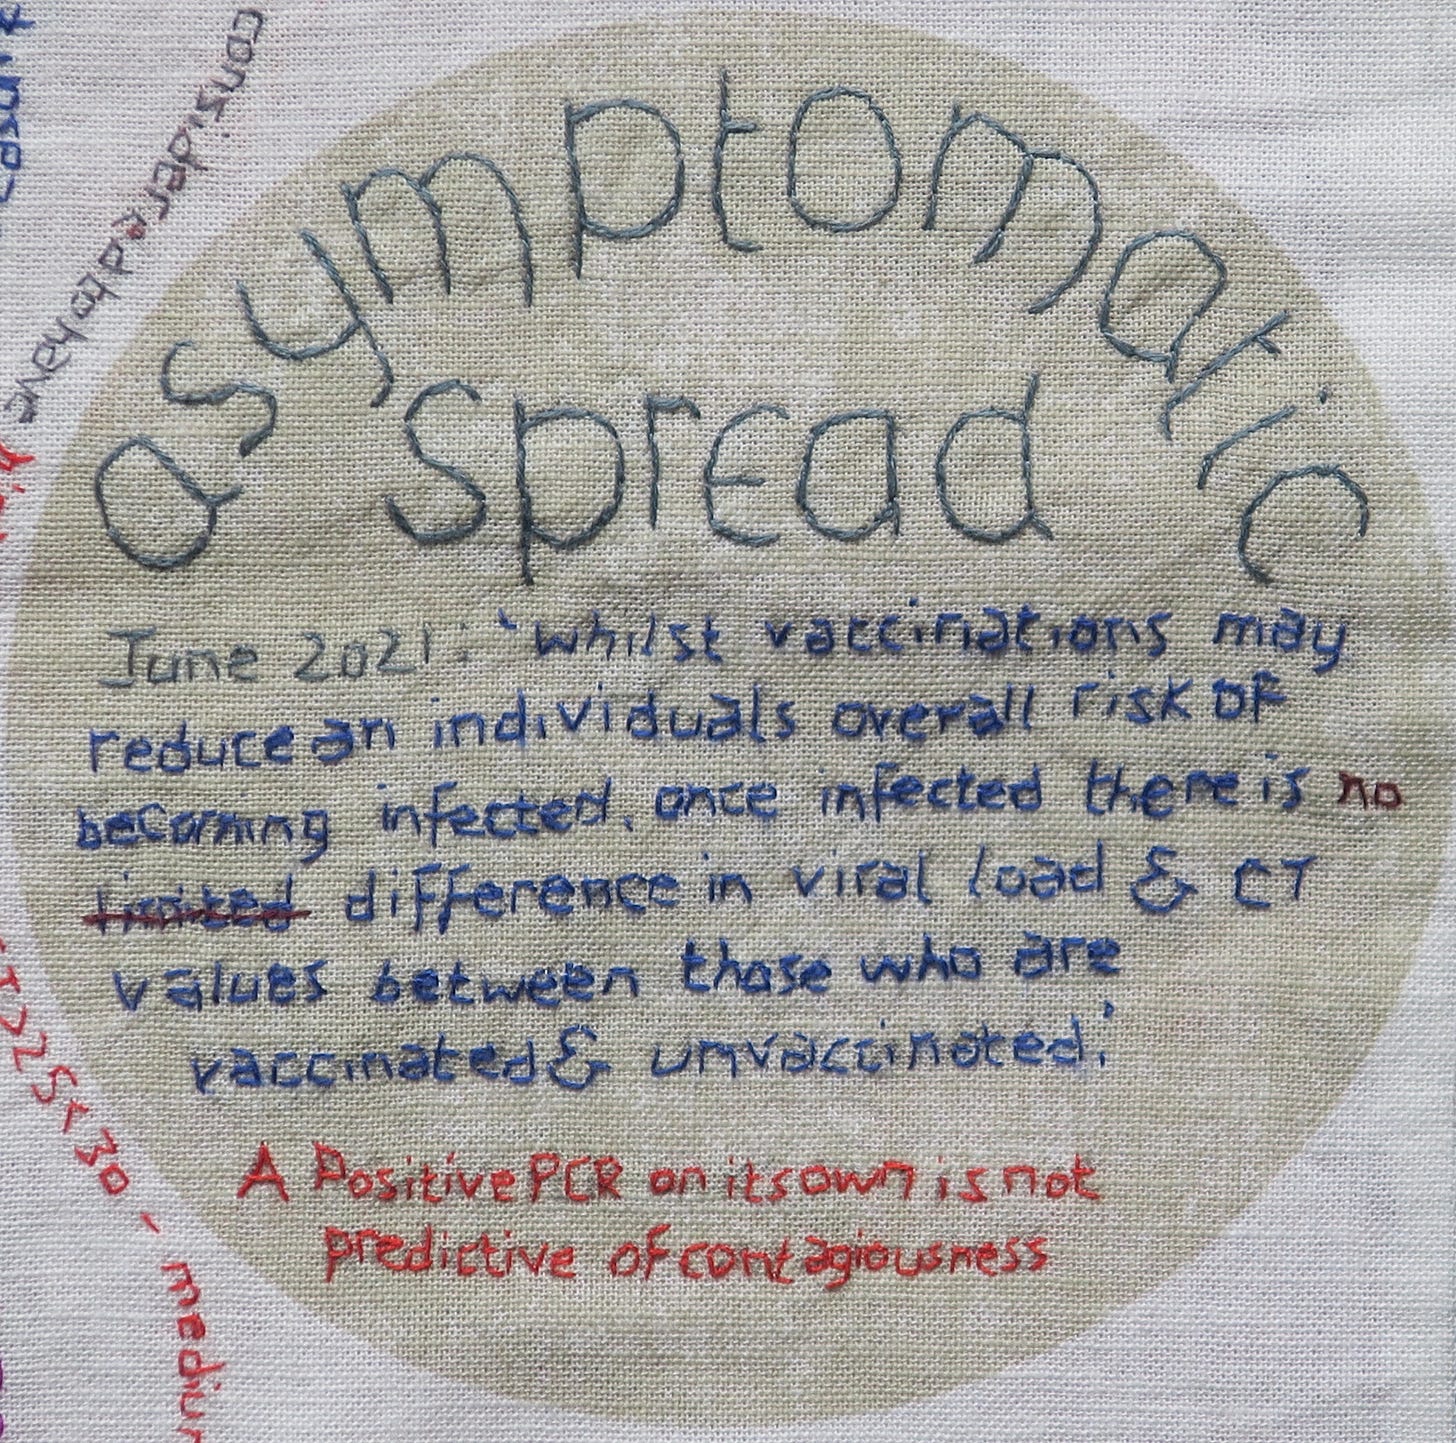 considered to have
asymptomatic
spread
June 2021: 'whilst vaccinations may
reduce an individuals overall risk of
becoming infected, once infected there is no
limited difference in viral load & CT
values between those who are
vaccinated & unvaccinated.'
A Positive PCR on its own is not
predictive of contagiousness